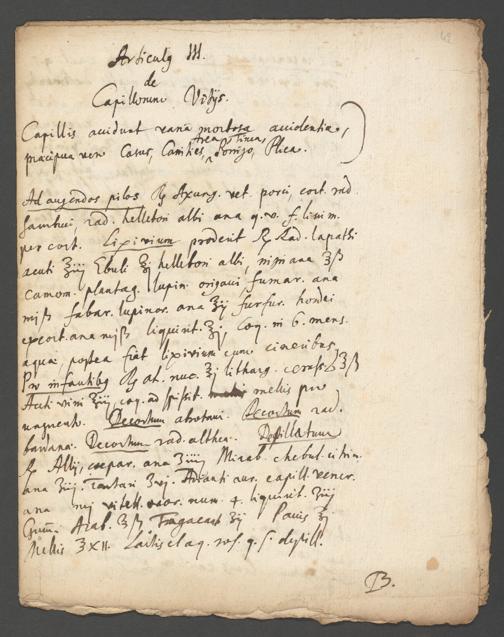 Articulg III.
de
Capillorum Vitijs.
Capillis accidunt varia morbosa accidentia,
Area, Tinea,
præcipua vero Casus, Canities, Porrigo, Plica.
Ad augendos pilos ℞ Axung. vet. porci, cort. rad.
sambuci, rad. hellebori albi ana q. v. f. linim.
per cort. Lixivium proderit ℞ Rad. lapathi
acuti ℥iij Ebuli ℥j hellebori albi, ana ℥ß
camom. plantag. lupin. origani fumar. ana
mjß fabar. lupinor. ana ℥ij furfur. hordei
excort. ana mjß liquirit. ℥j, coq. in 6. mens.
aquæ, postea fiat lixivium cum cineribus
Pro infantibg ℞ ol. nuc. ℥j litharg. ceruss. ℥ß
Aceti vini ℥iij, coq. ad spissit. mellis pro
unguento. Decoctum abrotani. Decoctum rad.
bardanæ. Decoctum rad. altheæ. Destillatum
℞ Allij, cepar. ana ℥iiij Mirab. chebul. citrin.
ana ℥iij. Tartari ℥vj. Adianti aur. capill. vener.
ana mij vitell. ovor. num. 4. liquirit. ℥iij
Gum̃i Arab. ℥ß Tragacant ℥ij Panis ℥j
Mellis ℥XII. Lactis et aq. ros. q. s. destill.
B.